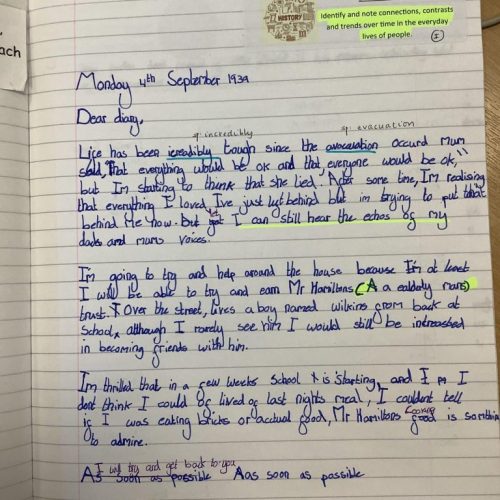 HISTORY
Identify and note connections, contrasts
and trends over time in the everyday
lives of people.
I
ach
Monday 4th September 1939
Dear diary,
sp. incredibly sp. evacuation
Life has been icreadibly tough since the avacuation occurd Mum
said, "That everything would be ok and that everyone would be ok,"
but I'm starting to think that she lied. After some time, I'm realising
that everything I loved, I've just left behind but im trying to put that
behind me now. But yet I can still hear the echos of my
dads and mums voices.
I'm going to try and help around the house because I'm at least
I will be able to try and earn Mr Hamiltons (A a ealdaly mans)
trust. Over the street, lives a boy named wilkins from back at
School, although I rarely see him I would still be intreashed
in becoming friends with him.
I'm thrilled that in a few weeks School is starting, and I I
dont think I could of lived of last nights meal, I couldent tell
if I was eating bricks or actual food, Mr Hamiltons cooking food is somthing
to admire.
I will try and get back to you
As soon as possible Aas soon as possible